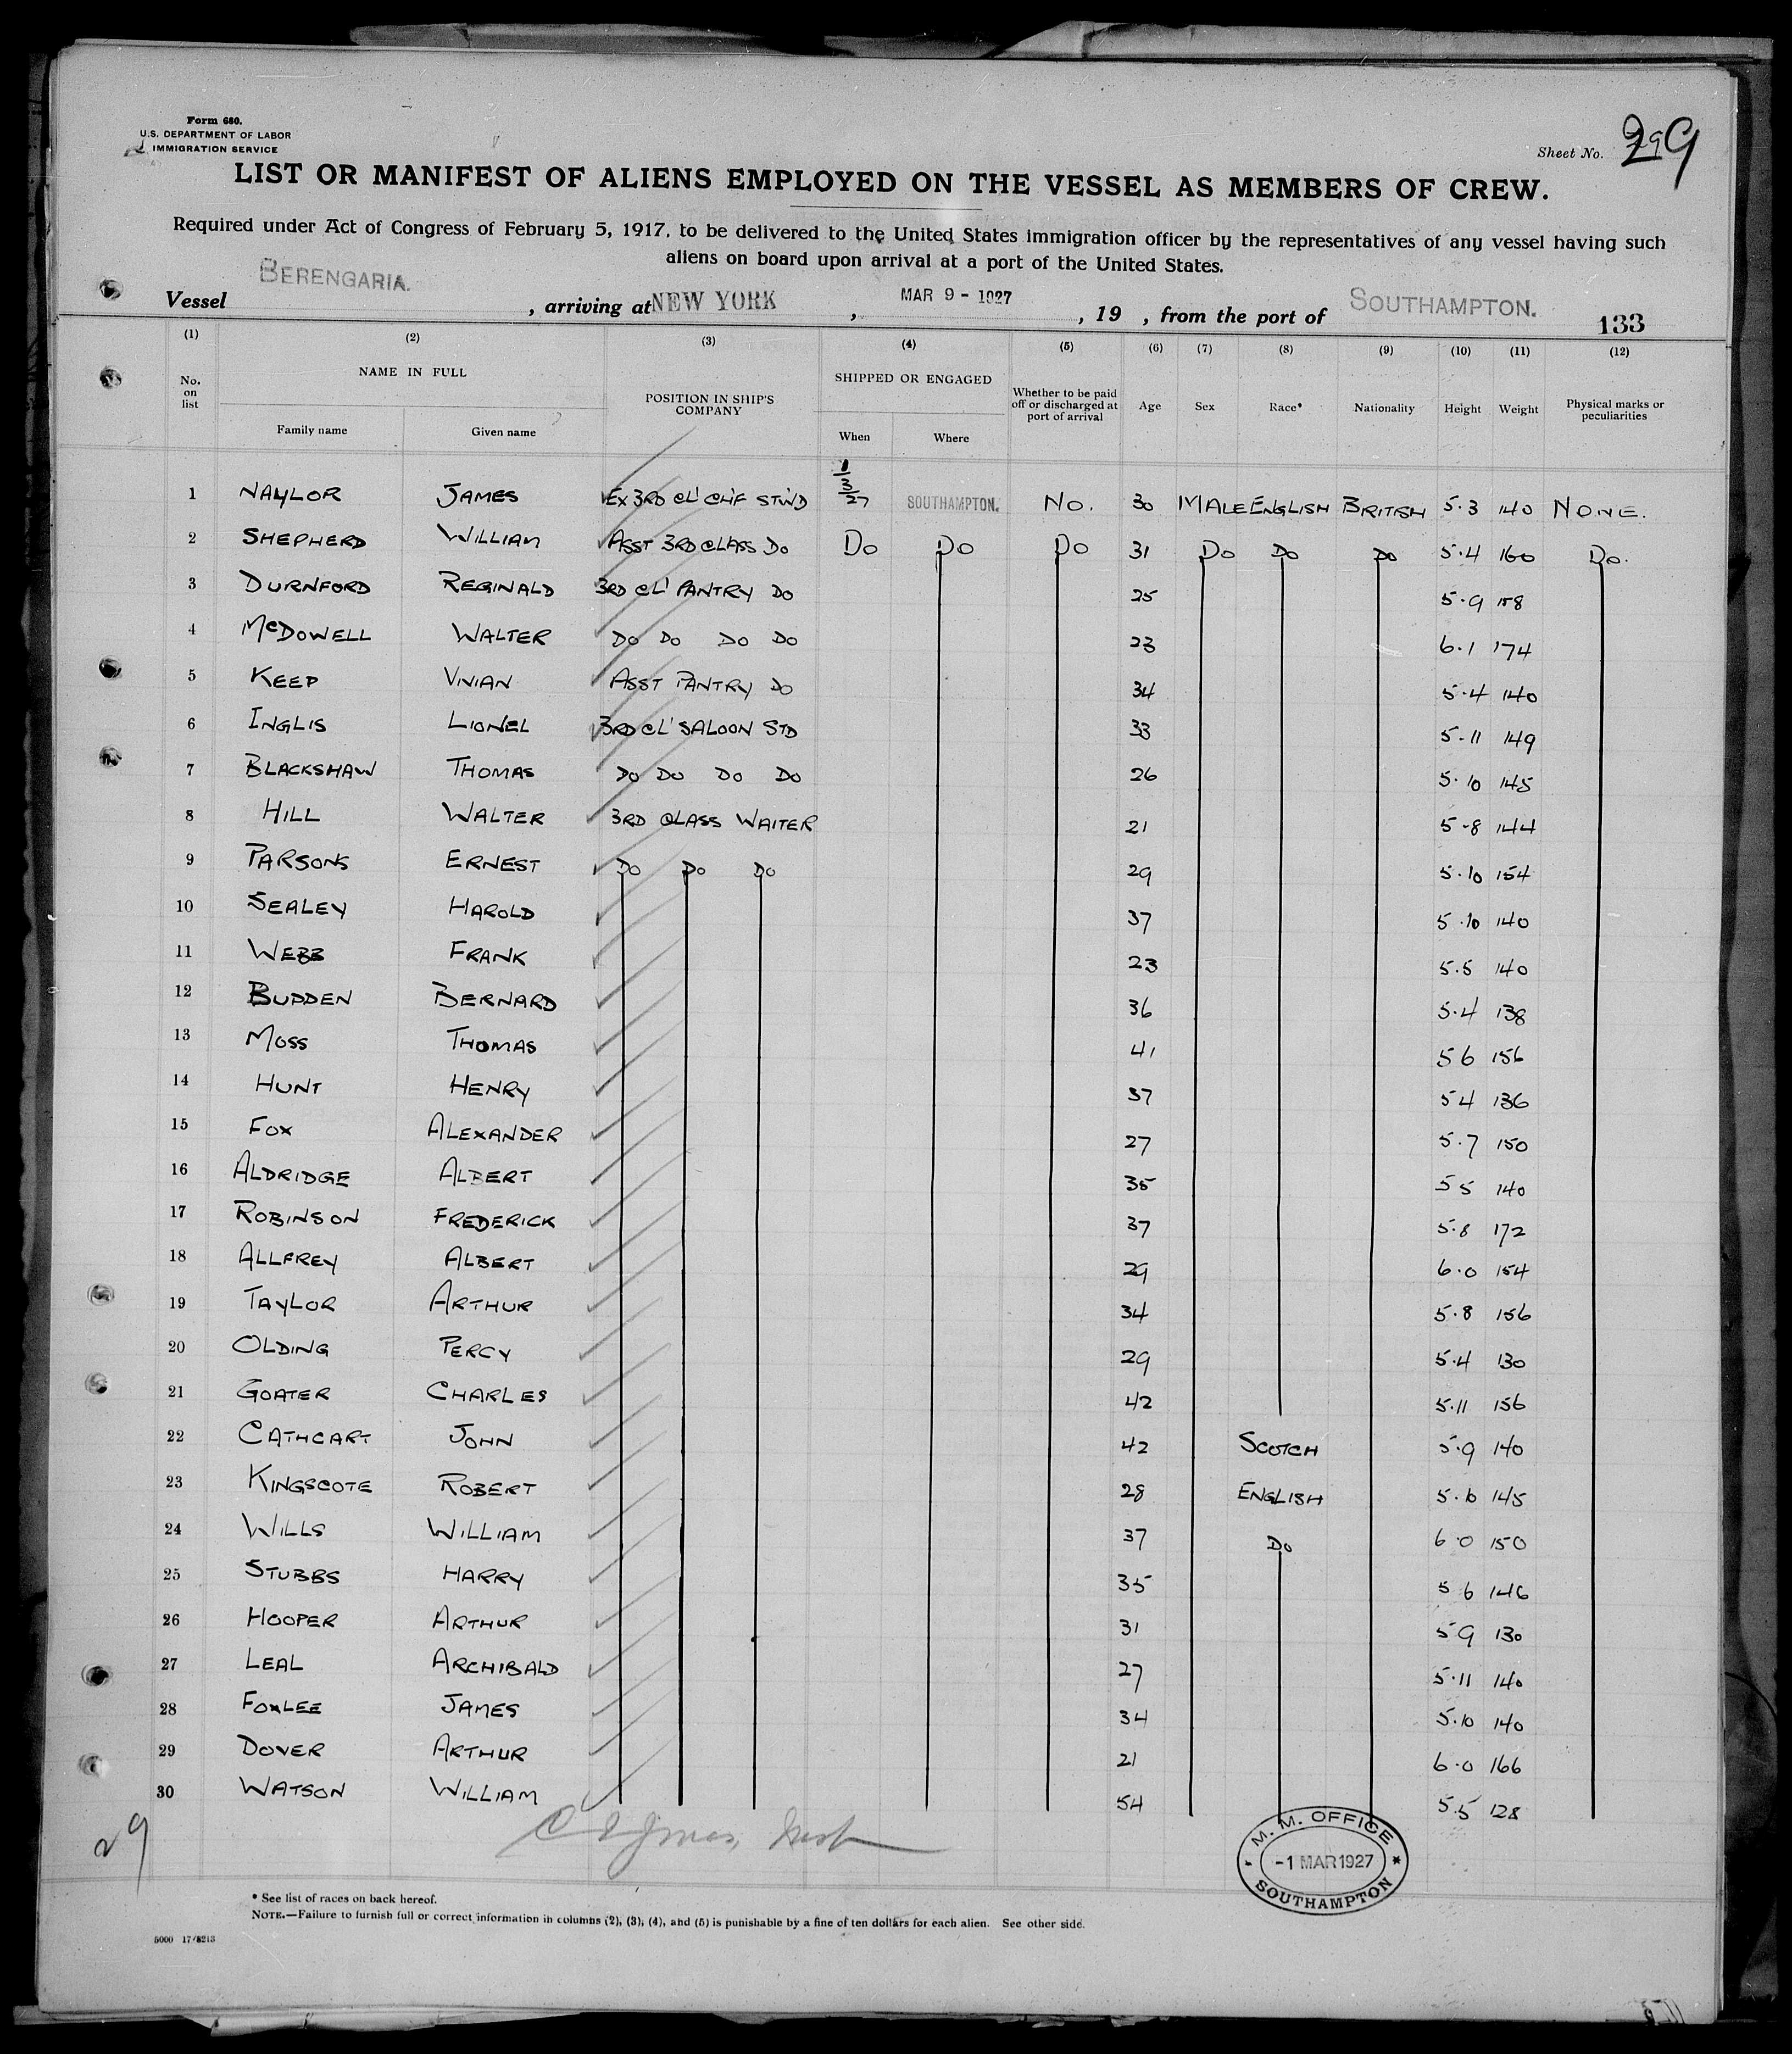 Form 680.
U.S. DEPARTMENT OF LABOR
IMMIGRATION SERVICE
Sheet No. 29 9
LIST OR MANIFEST OF ALIENS EMPLOYED ON THE VESSEL AS MEMBERS OF CREW.
Required under Act of Congress of February 5, 1917, to be delivered to the United States immigration officer by the representatives of any vessel having such
aliens on board upon arrival at a port of the United States.
Vessel BERENGARIA. , arriving at NEW YORK , MAR 9 - 1927 , 19 , from the port of SOUTHAMPTON.
133
(1) (2) (3) (4) (5) (6) (7) (8) (9) (10) (11) (12)
No. on list NAME IN FULL POSITION IN SHIP'S COMPANY SHIPPED OR ENGAGED Whether to be paid off or discharged at port of arrival Age Sex Race* Nationality Height Weight Physical marks or peculiarities
Family name Given name When Where
1 NAYLOR JAMES EX 3RD CL' CH'F STW'D 1/3/27 SOUTHAMPTON. NO. 30 MALE ENGLISH BRITISH 5.3 140 NONE.
2 SHEPHERD WILLIAM ASST 3RD CLASS DO DO DO DO 31 DO DO DO 5.4 160 DO.
3 DURNFORD REGINALD 3RD CL' PANTRY DO 25 5.9 158
4 McDOWELL WALTER DO DO DO DO 23 6.1 174
5 KEEP VIVIAN ASST PANTRY DO 34 5.4 140
6 INGLIS LIONEL 3RD CL' SALOON STD 33 5.11 149
7 BLACKSHAW THOMAS DO DO DO DO 26 5.10 145
8 HILL WALTER 3RD CLASS WAITER 21 5-8 144
9 PARSONS ERNEST DO DO DO 29 5.10 154
10 SEALEY HAROLD 37 5.10 140
11 WEBB FRANK 23 5.5 140
12 BUDDEN BERNARD 36 5.4 138
13 MOSS THOMAS 41 5 6 156
14 HUNT HENRY 37 5 4 136
15 FOX ALEXANDER 27 5.7 150
16 ALDRIDGE ALBERT 35 5 5 140
17 ROBINSON FREDERICK 37 5.8 172
18 ALLFREY ALBERT 29 6.0 154
19 TAYLOR ARTHUR 34 5.8 156
20 OLDING PERCY 29 5.4 130
21 GOATER CHARLES 42 5.11 156
22 CATHCART JOHN 42 SCOTCH 5.9 140
23 KINGSCOTE ROBERT 28 ENGLISH 145
24 WILLS WILLIAM 37 DO 6 0 150
25 STUBBS HARRY 35 5 6 146
26 HOOPER ARTHUR 31 5 9 130
27 LEAL ARCHIBALD 27 5.11 140
28 FOXLEE JAMES 34 5.10 140
29 DOVER ARTHUR 21 6.0 166
30 WATSON WILLIAM 54 5.5 128
29
M. M. OFFICE
-1 MAR 1927
SOUTHAMPTON
* See list of races on back hereof.
NOTE.—Failure to furnish full or correct information in columns (2), (3), (4), and (5) is punishable by a fine of ten dollars for each alien. See other side.
5000 17/8213